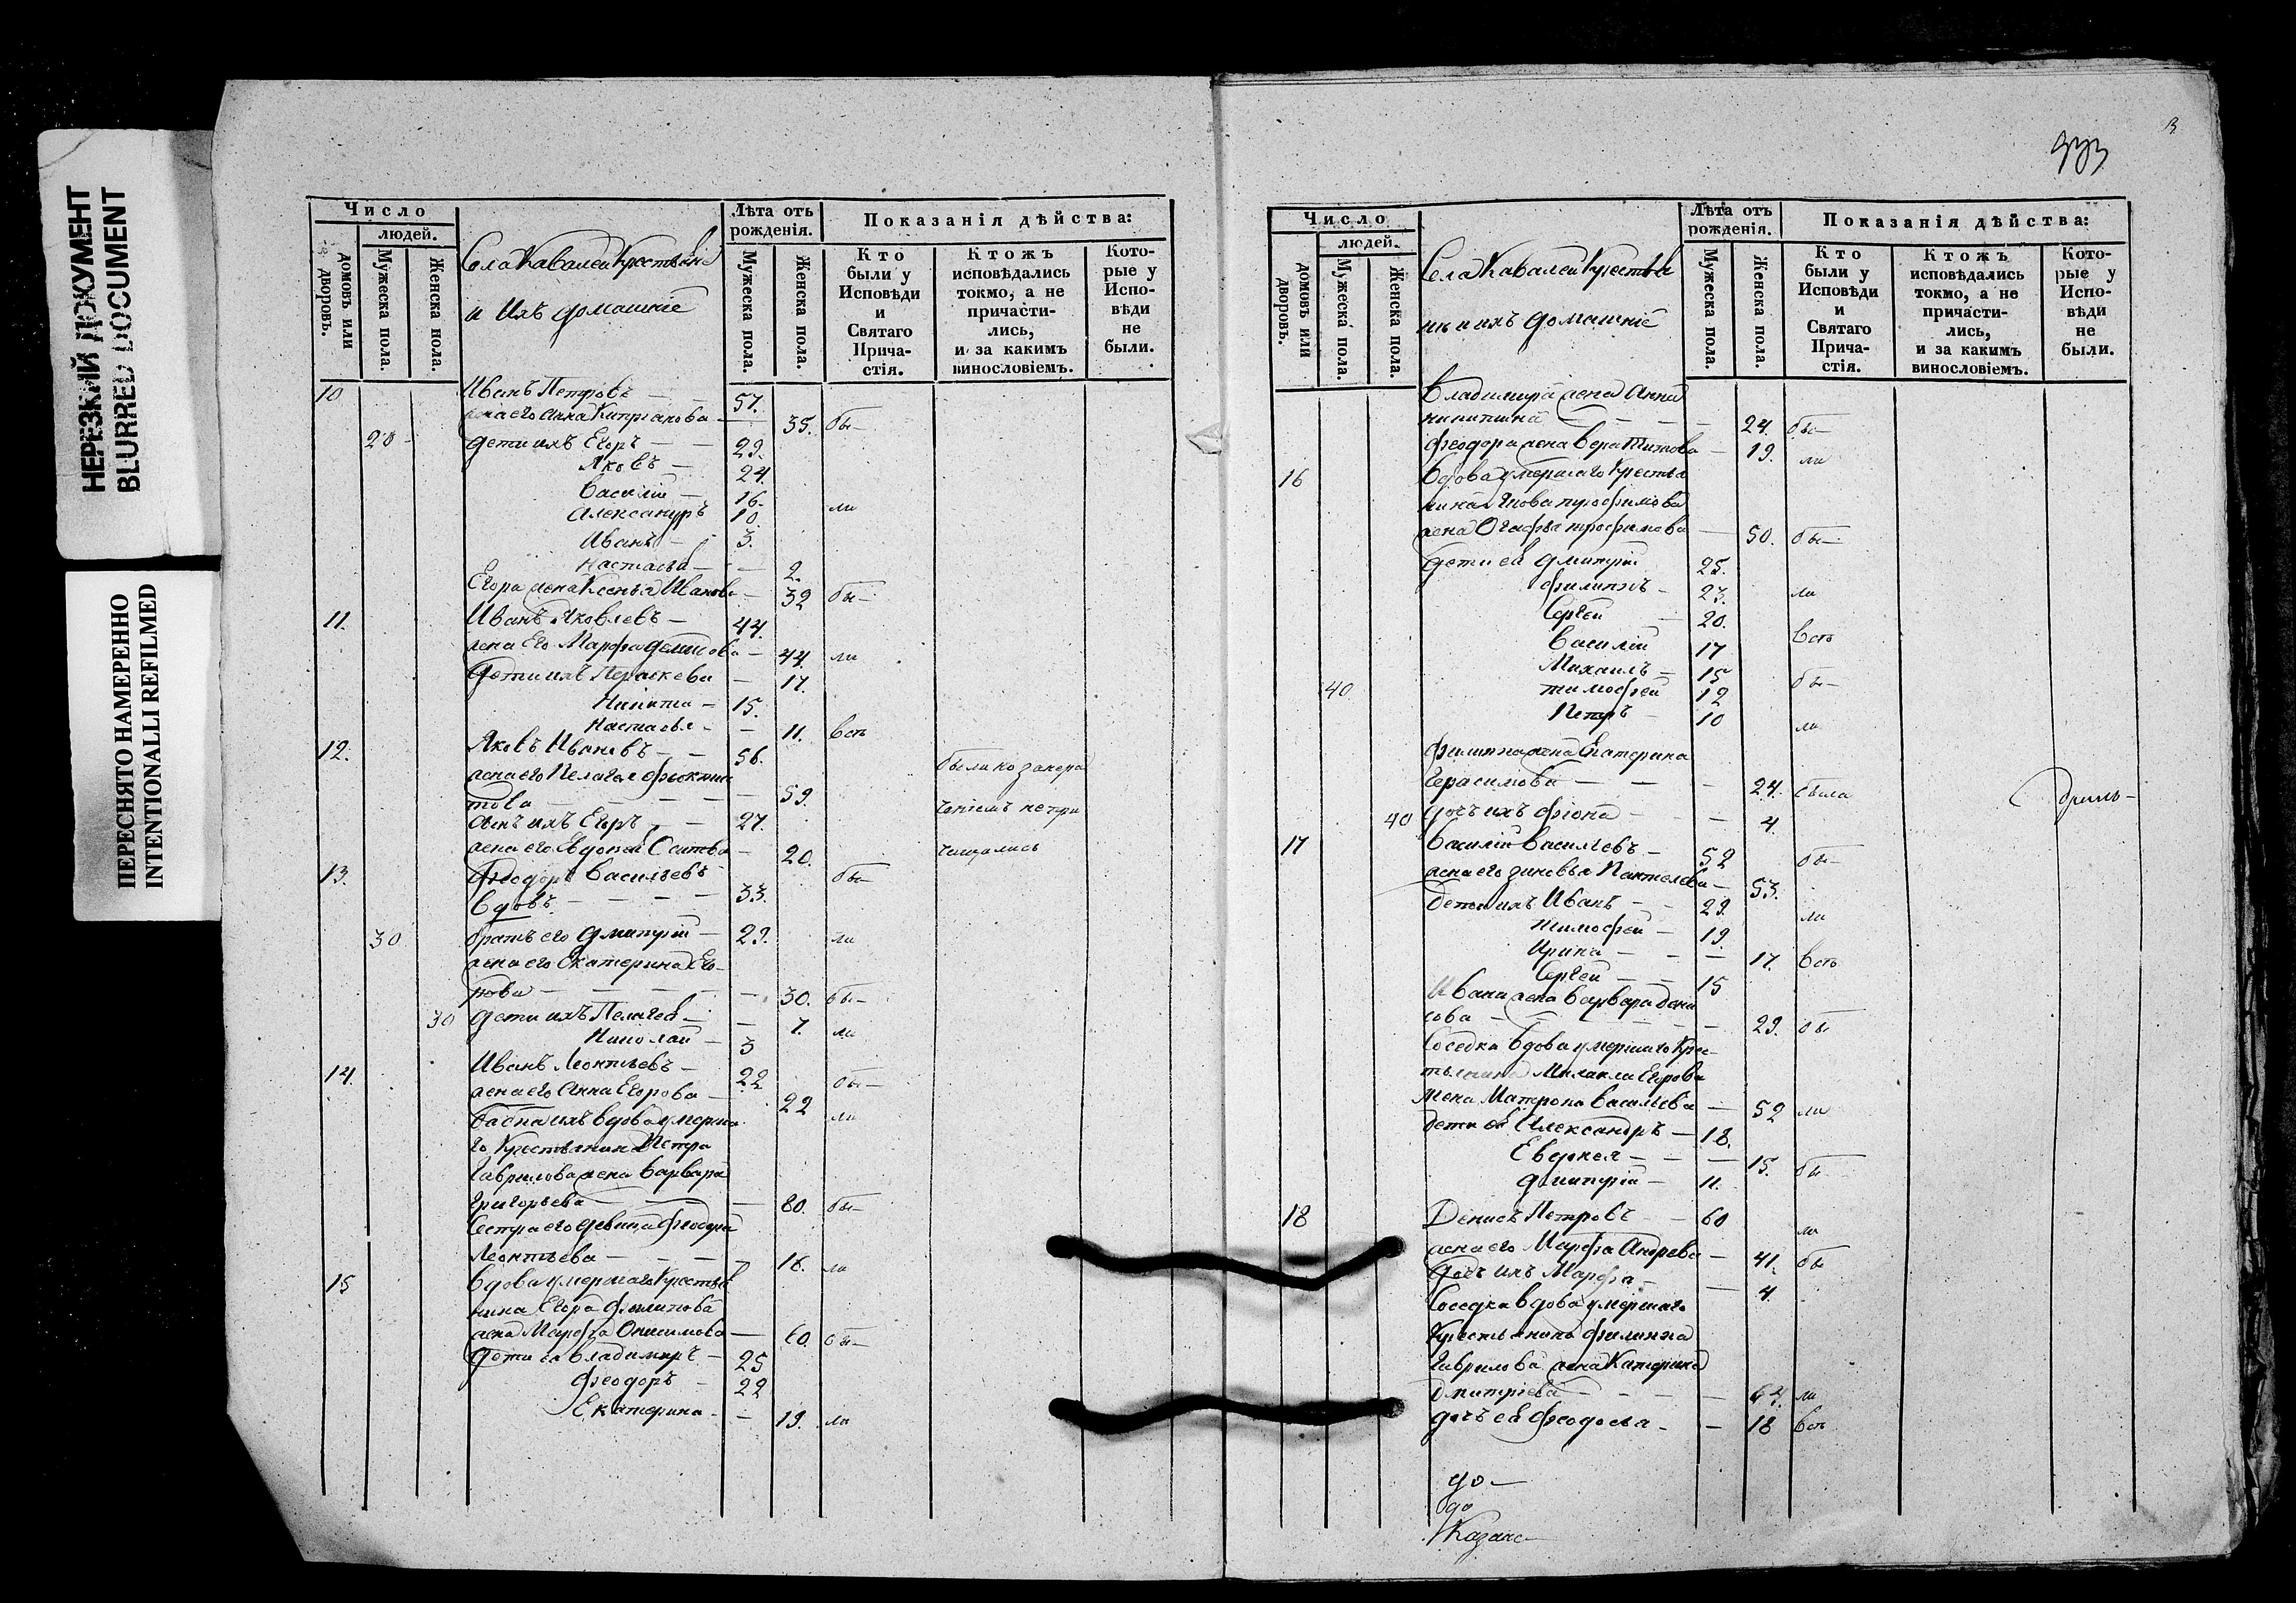 НЕРЕЗКИЙ ДОКУМЕНТ
BLURRED DOCUMENT
ПЕРЕСНЯТО НАМЕРЕННО
INTENTIONALLI REFILMED
Число
людей.
домовъ или дворовъ.
Мужеска пола.
Женска пола.
Села Кавалеи Крестьяне
и Ихъ домашніе
Лѣта отъ рожденія.
Мужеска пола.
Женска пола.
Показанія дѣйства:
Кто были у Исповѣди и Святаго Прича-стія.
Ктожъ исповѣдались токмо, а не причасти-лись, и за какимъ винословіемъ.
Кото-рые у Испо-вѣди не были.
10 Иванъ Петровъ — 57.
жена его Анна Кипріанова — 35. бы—
20 дети ихъ Егоръ — 29.
Яковъ — 24.
Василій — 16.
Александръ 10. ли
Иванъ — 3.
Настасья — 2.
Егора жена Ксенья Иванова — 32 бы—
11. Иванъ Яковлевъ — 44.
жена Его Марфа — 44. ли
Дети ихъ Пераскева — 17.
Никита — 15.
Настасья — 11. всѣ
12. Яковъ Ивановъ — 56.
жена его Пелагея Феоктис
това — 59.
сынъ ихъ Егоръ — 27.
жена его Евдокия — 20.
13. Феодоръ Васильевъ бы—
вдовъ — 33.
30 братъ его Дмитрій — 29. ли
жена его Екатерина Его-
рова — 30. бы—
30 дети ихъ Пелагея — 7. ли
Николай — 3
14. Иванъ Леонтьевъ — 22 бы—
жена его Анна Егорова — 22 ли
вдова умерша
го Крестьянина Петра
Гаврилова жена Варвара
Григорьева — 80. бы—
Сестра его девица Феодора
Леонтьева — 18. ли
15 вдова умершаго Крестья
нина Егора Филипова
жена Марфа Онисимова — 60. бы—
Дети ея Владимиръ — 25
Феодоръ — 22
Екатерина — 19. ли
3
Число
людей.
домовъ или дворовъ.
Мужеска пола.
Женска пола.
Села Кавалеи Крестья
не и ихъ домашніе
Лѣта отъ рожденія.
Мужеска пола.
Женска пола.
Показанія дѣйства:
Кто были у Исповѣди и Святаго Прича-стія.
Ктожъ исповѣдались токмо, а не причасти-лись, и за какимъ винословіемъ.
Кото-рые у Испо-вѣди не были.
Владимира жена Анна
Никитина — 24. бы—
Феодора жена Вера Титова — 19. ли
16 Вдова умершаго Крестья
нина Якова Трофимова
жена Огафья Трофимова — 50. бы—
Дети ея Дмитрій 25.
Филиппъ — 23. ли
Сергей 20.
Василій 17 всѣ
Михаилъ — 15
40 Тимофей 12 бы—
Петръ — 10 ли
Филиппа жена Екатерина
Герасимова — 24. была
40 Дочь ихъ Фіона — 4.
17 Василій Васильевъ — 52 бы—
жена его Зиновья Пантелеева — 53.
Дети ихъ Иванъ — 29. ли
Тимофей — 19.
Ирина — 17. всѣ
Сергей — 15
Ивана жена Варвара Дени
сова — 29. бы
Соседка вдова умершаго Крес-
тьянина Михаила Егорова
жена Матрона Васильева — 52 ли
дети ея Александръ — 18.
15. бы
Дмитрій — 11.
18 Денисъ Петровъ — 60 ли
жена его Марфа Андреева — 41. бы
Дочь ихъ Марфа — 4.
Соседка вдова умершаго
Крестьянина Филиппа
Гаврилова жена Катерина
Дмитріева — 64. ли
дочь ея Феодосья — 18 всѣ